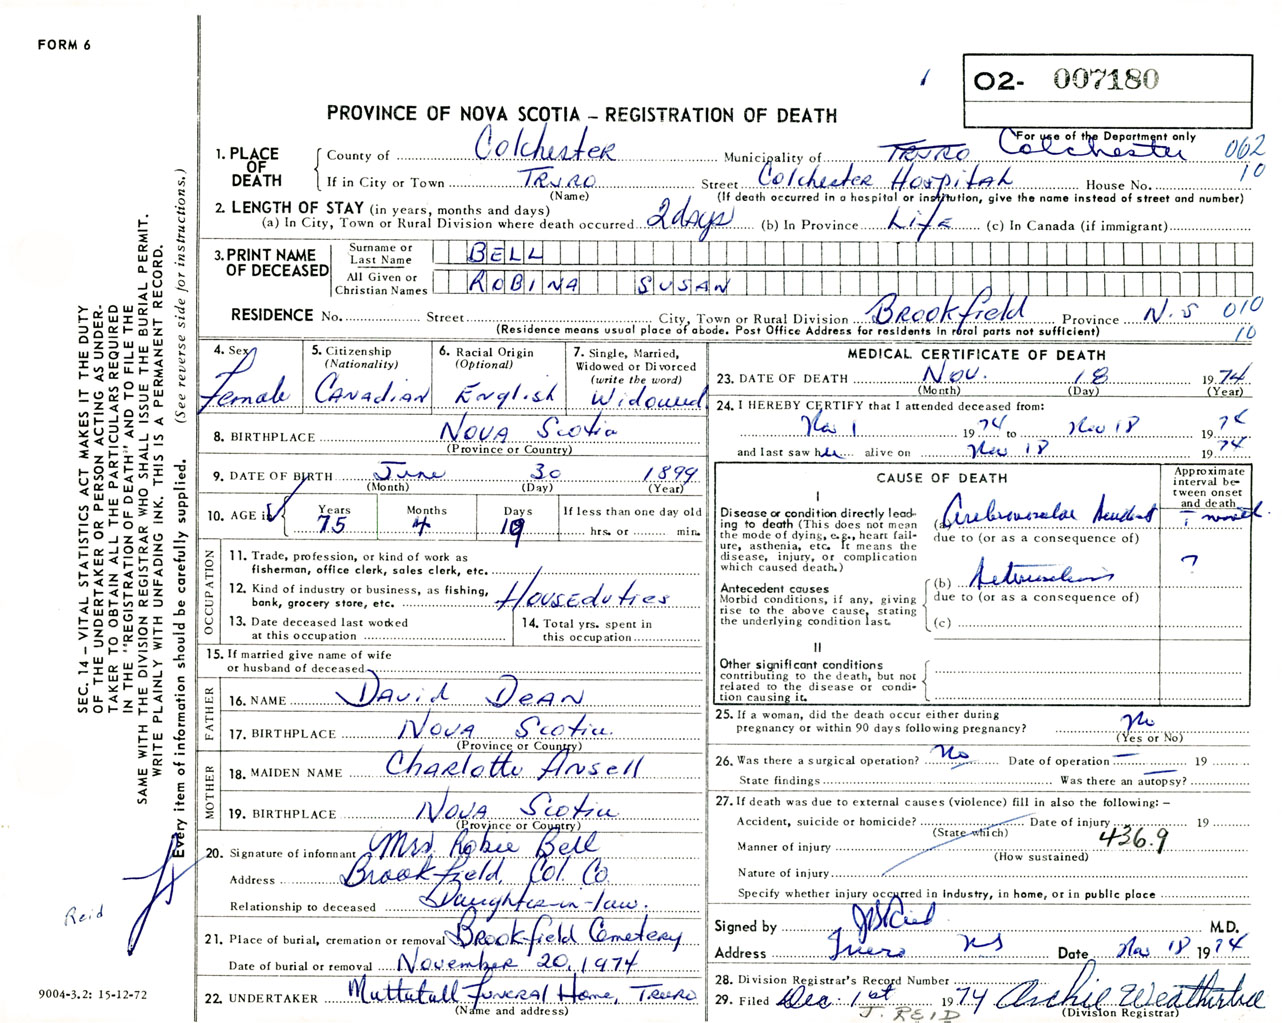 FORM 6
O2- 007180
For use of the Department only
PROVINCE OF NOVA SCOTIA – REGISTRATION OF DEATH
1. PLACE OF DEATH
County of Colchester Municipality of Truro Colchester 062
If in City or Town Truro Street Colchester Hospital House No. 10
(Name) (If death occurred in a hospital or institution, give the name instead of street and number)
2. LENGTH OF STAY (in years, months and days)
(a) In City, Town or Rural Division where death occurred 2 days (b) In Province Life (c) In Canada (if immigrant)
3. PRINT NAME OF DECEASED
Surname or Last Name BELL
All Given or Christian Names ROBINA SUSAN
RESIDENCE No. Street City, Town or Rural Division Brookfield Province N.S 010
(Residence means usual place of abode. Post Office Address for residents in rural parts not sufficient) 10
4. Sex Female
5. Citizenship (Nationality) Canadian
6. Racial Origin (Optional) English
7. Single, Married, Widowed or Divorced (write the word) Widowed
8. BIRTHPLACE Nova Scotia
(Province or Country)
9. DATE OF BIRTH June 30 1899
(Month) (Day) (Year)
10. AGE Years Months Days If less than one day old
75 4 19 hrs. or min.
OCCUPATION
11. Trade, profession, or kind of work as fisherman, office clerk, sales clerk, etc.
12. Kind of industry or business, as fishing, bank, grocery store, etc. Houseduties
13. Date deceased last worked at this occupation
14. Total yrs. spent in this occupation
15. If married give name of wife or husband of deceased
FATHER
16. NAME David Dean
17. BIRTHPLACE Nova Scotia
(Province or Country)
MOTHER
18. MAIDEN NAME Charlotte Ansell
19. BIRTHPLACE Nova Scotia
(Province or Country)
20. Signature of informant Mrs Robie Bell
Address Brookfield, Col. Co.
Relationship to deceased Daughter-in-law.
21. Place of burial, cremation or removal Brookfield Cemetery
Date of burial or removal November 20, 1974
22. UNDERTAKER Mattatall Funeral Home, Truro
(Name and address)
MEDICAL CERTIFICATE OF DEATH
23. DATE OF DEATH Nov. 18 1974
(Month) (Day) (Year)
24. I HEREBY CERTIFY that I attended deceased from:
Nov 1 1974 to Nov 18 1974
and last saw her alive on Nov 18 1974
CAUSE OF DEATH
Approximate interval between onset and death
I
Disease or condition directly leading to death (This does not mean the mode of dying, e.g., heart failure, asthenia, etc. It means the disease, injury, or complication which caused death.)
(a) Cerebrovascular Accident
due to (or as a consequence of)
Antecedent causes
Morbid conditions, if any, giving rise to the above cause, stating the underlying condition last.
(b) ?
due to (or as a consequence of)
(c)
II
Other significant conditions contributing to the death, but not related to the disease or condition causing it.
25. If a woman, did the death occur either during pregnancy or within 90 days following pregnancy? No
(Yes or No)
26. Was there a surgical operation? No Date of operation — 19
State findings Was there an autopsy? —
27. If death was due to external causes (violence) fill in also the following: –
Accident, suicide or homicide? Date of injury 19
(State which) 436.9
Manner of injury
(How sustained)
Nature of injury
Specify whether injury occurred in industry, in home, or in public place
Signed by J B Reid M.D.
Address Truro NS Date Nov 18 1974
28. Division Registrar's Record Number
29. Filed Dec. 1st 1974 Archie Weatherbee
(Division Registrar)
J. REID
SEC. 14 – VITAL STATISTICS ACT MAKES IT THE DUTY
OF THE UNDERTAKER OR PERSON ACTING AS UNDER-
TAKER TO OBTAIN ALL THE PARTICULARS REQUIRED
IN THE "REGISTRATION OF DEATH" AND TO FILE THE
SAME WITH THE DIVISION REGISTRAR WHO SHALL ISSUE THE BURIAL PERMIT.
WRITE PLAINLY WITH UNFADING INK. THIS IS A PERMANENT RECORD.
Every item of information should be carefully supplied. (See reverse side for instructions.)
Reid
9004-3.2: 15-12-72